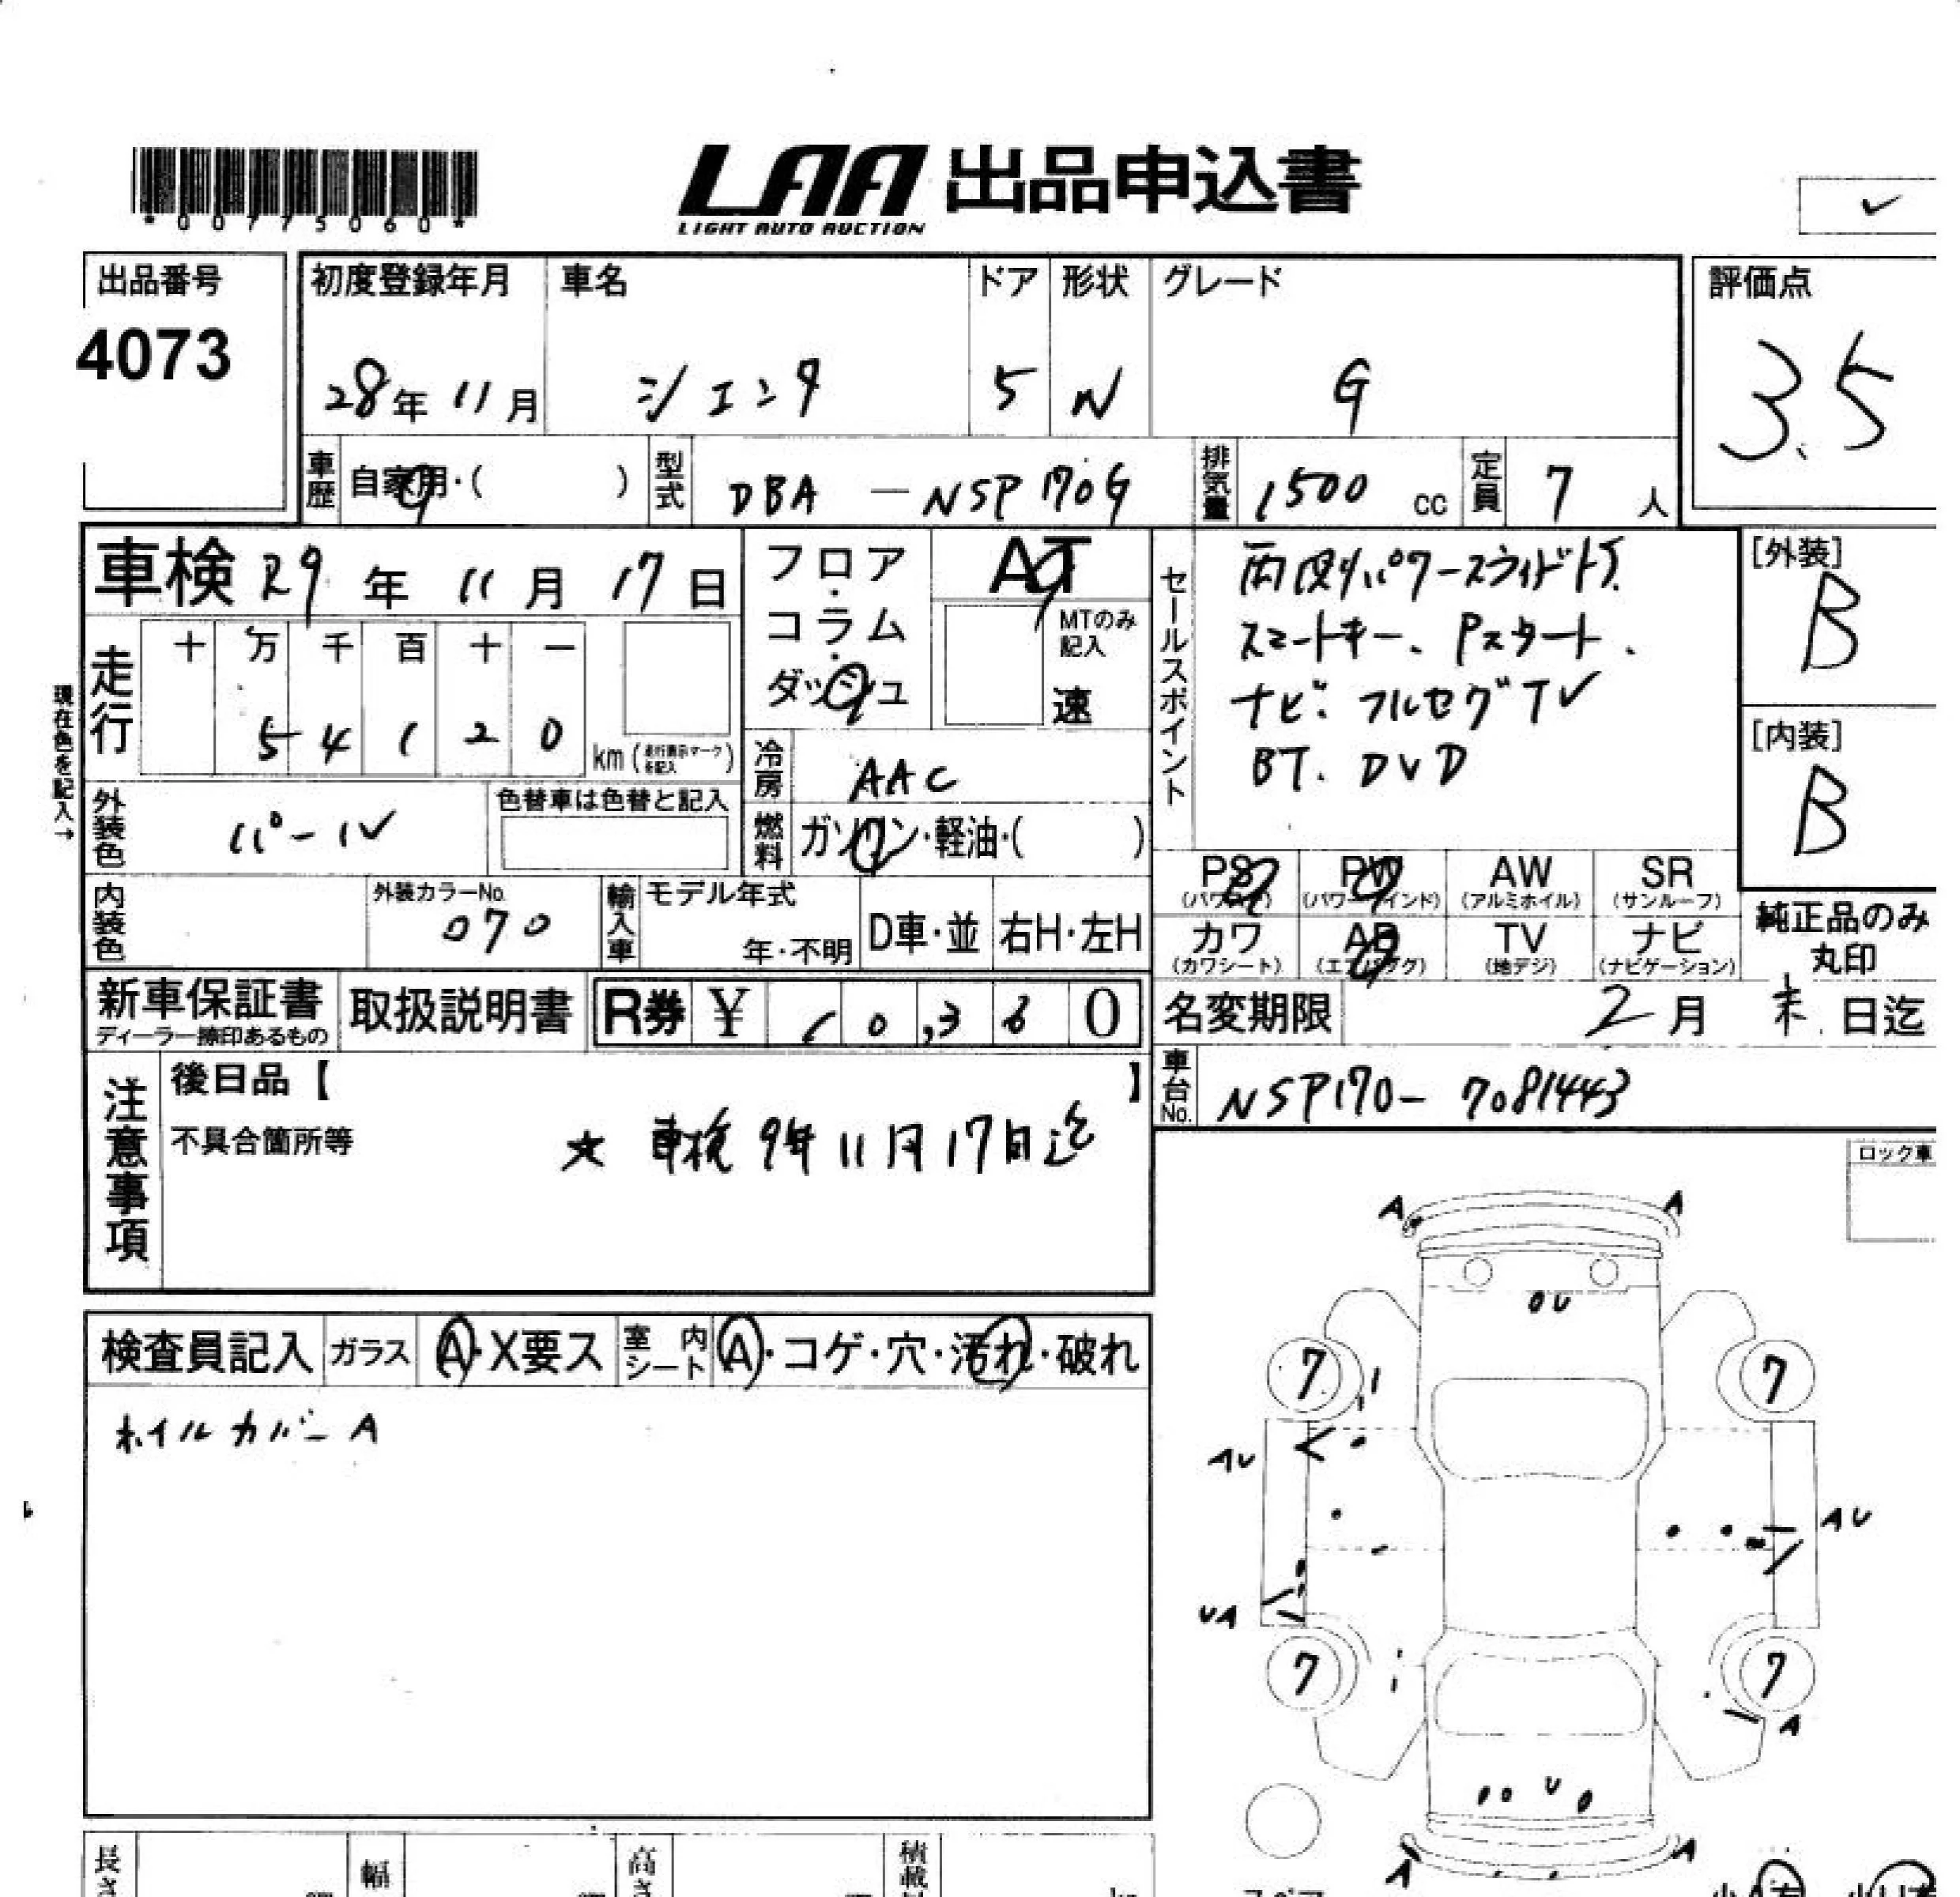 *00775060*
LAA 出品申込書
LIGHT AUTO AUCTION
✓
出品番号
4073
初度登録年月
28年 11月
車名
シエンタ
ドア
5
形状
W
グレード
G
評価点
3.5
車歴 自家用・( )
型式 DBA — NSP170G
排気量 1500 cc
定員 7 人
車検 R9 年 11 月 17 日
走行 十 万 千 百 十 一
5 4 1 2 0 km (走行表示マークを記入)
現在色を記入→
フロア・コラム・ダッシュ
AT
MTのみ記入
速
冷房 AAC
燃料 ガソリン・軽油・( )
外装色 パール
色替車は色替と記入
内装色
外装カラーNo. 070
輸入車
モデル年式
年・不明
D車・並
右H・左H
セールスポイント
両側パワースライドドア.
スマートキー、Pスタート、
ナビ. フルセグTV
BT. DVD
[外装]
B
[内装]
B
PS (パワステ)
PW (パワーウインド)
AW (アルミホイル)
SR (サンルーフ)
カワ (カワシート)
AB (エアバッグ)
TV (地デジ)
ナビ (ナビゲーション)
純正品のみ
丸印
新車保証書
ディーラー捺印あるもの
取扱説明書
R券 ¥ 10,360
名変期限 2月 末 日迄
車台No. NSP170-7081443
注意事項
後日品【 】
不具合箇所等
☆ 車検 9年11月17日迄
ロック車
検査員記入
ガラス A・X要ス
室内シート A・コゲ・穴・汚れ・破れ
ホイルカバーA
A A
U
7 7
AU
AU
UA
7 7
A
U
A A
長さ
幅
高さ